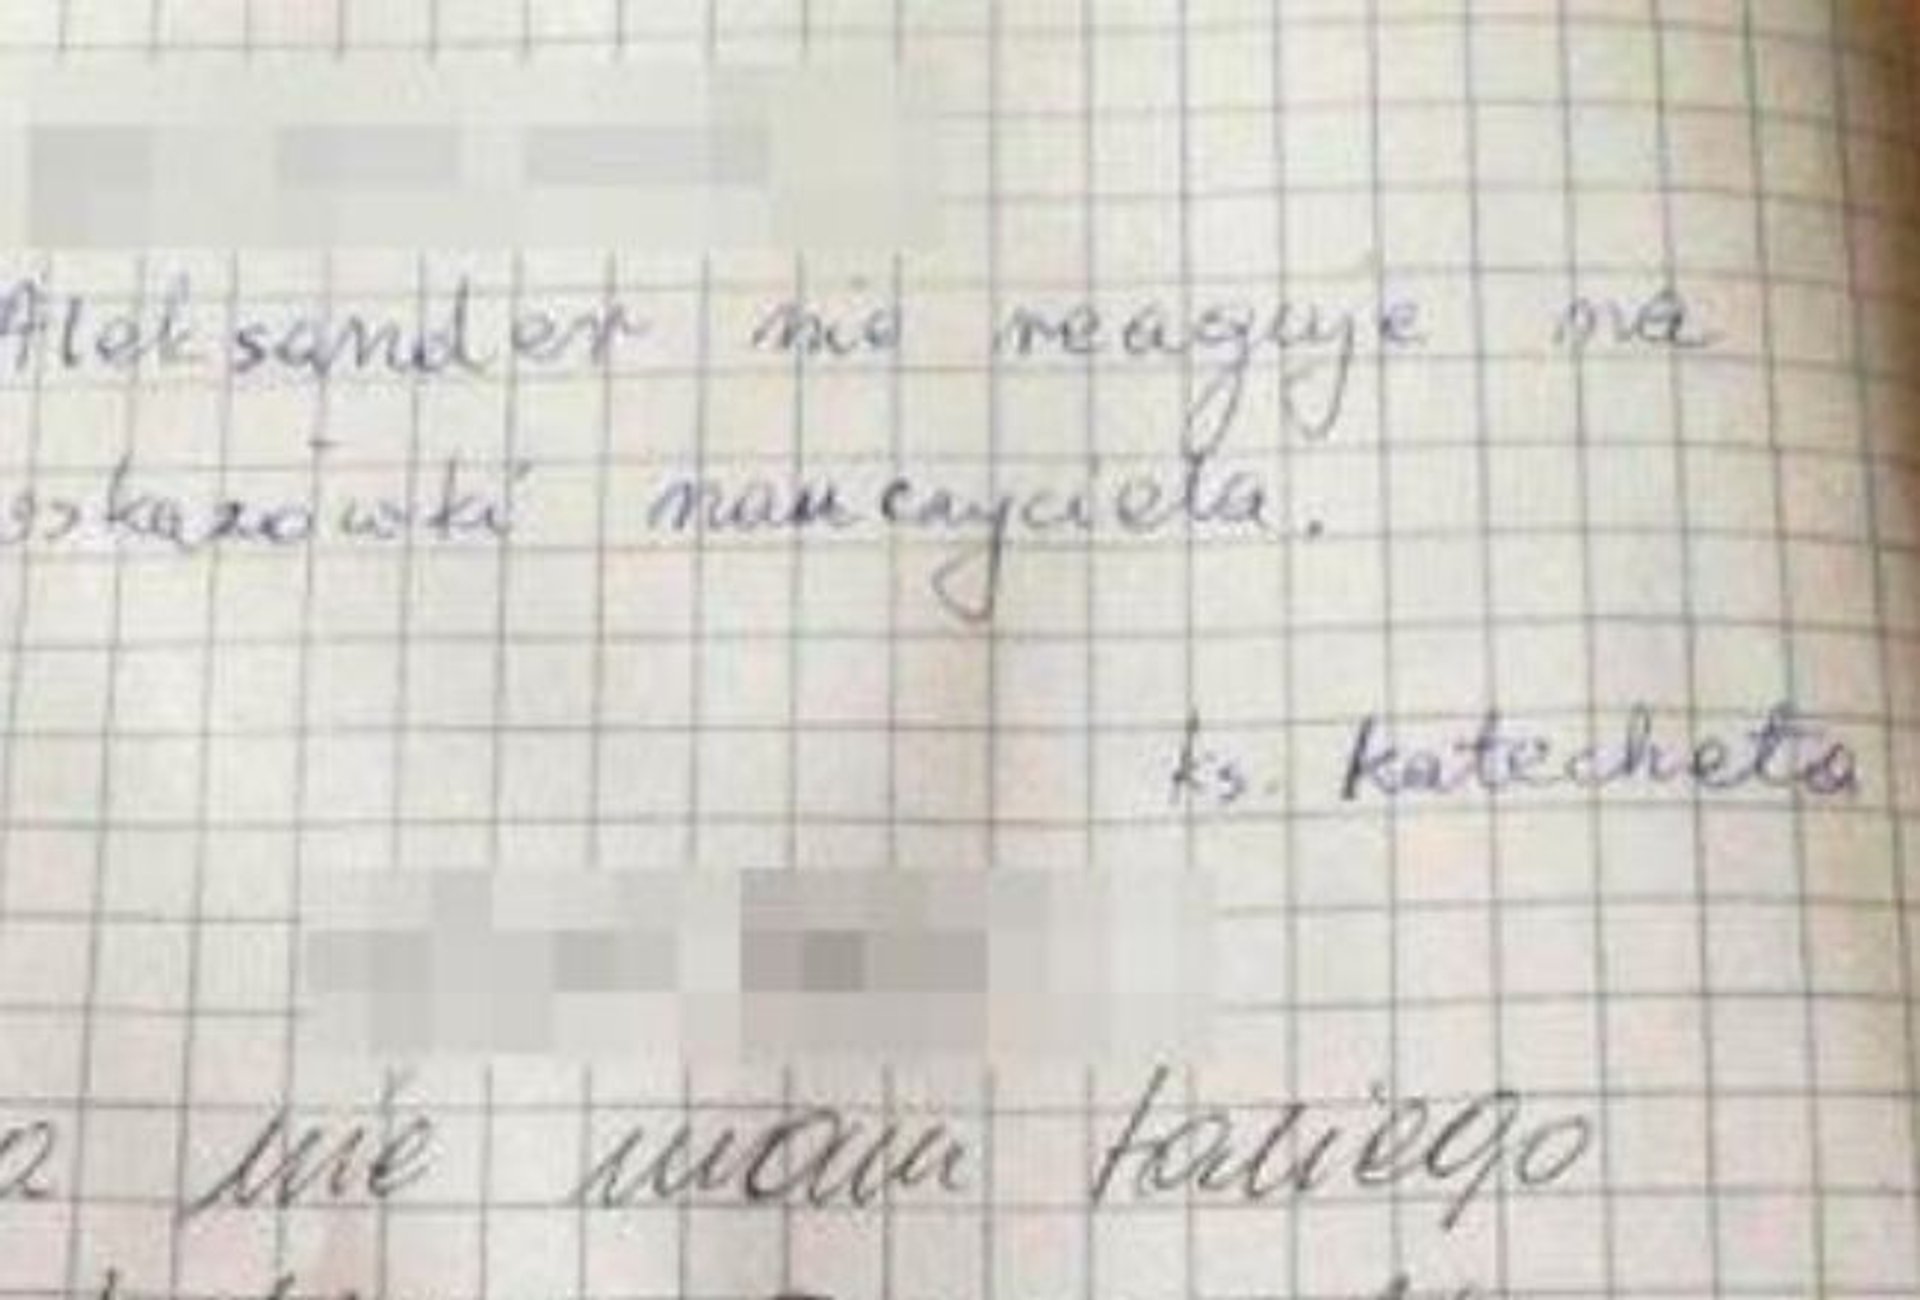 Aleksander nie reaguje na
wskazówki nauczyciela.
ks. katecheta
nie mam takiego